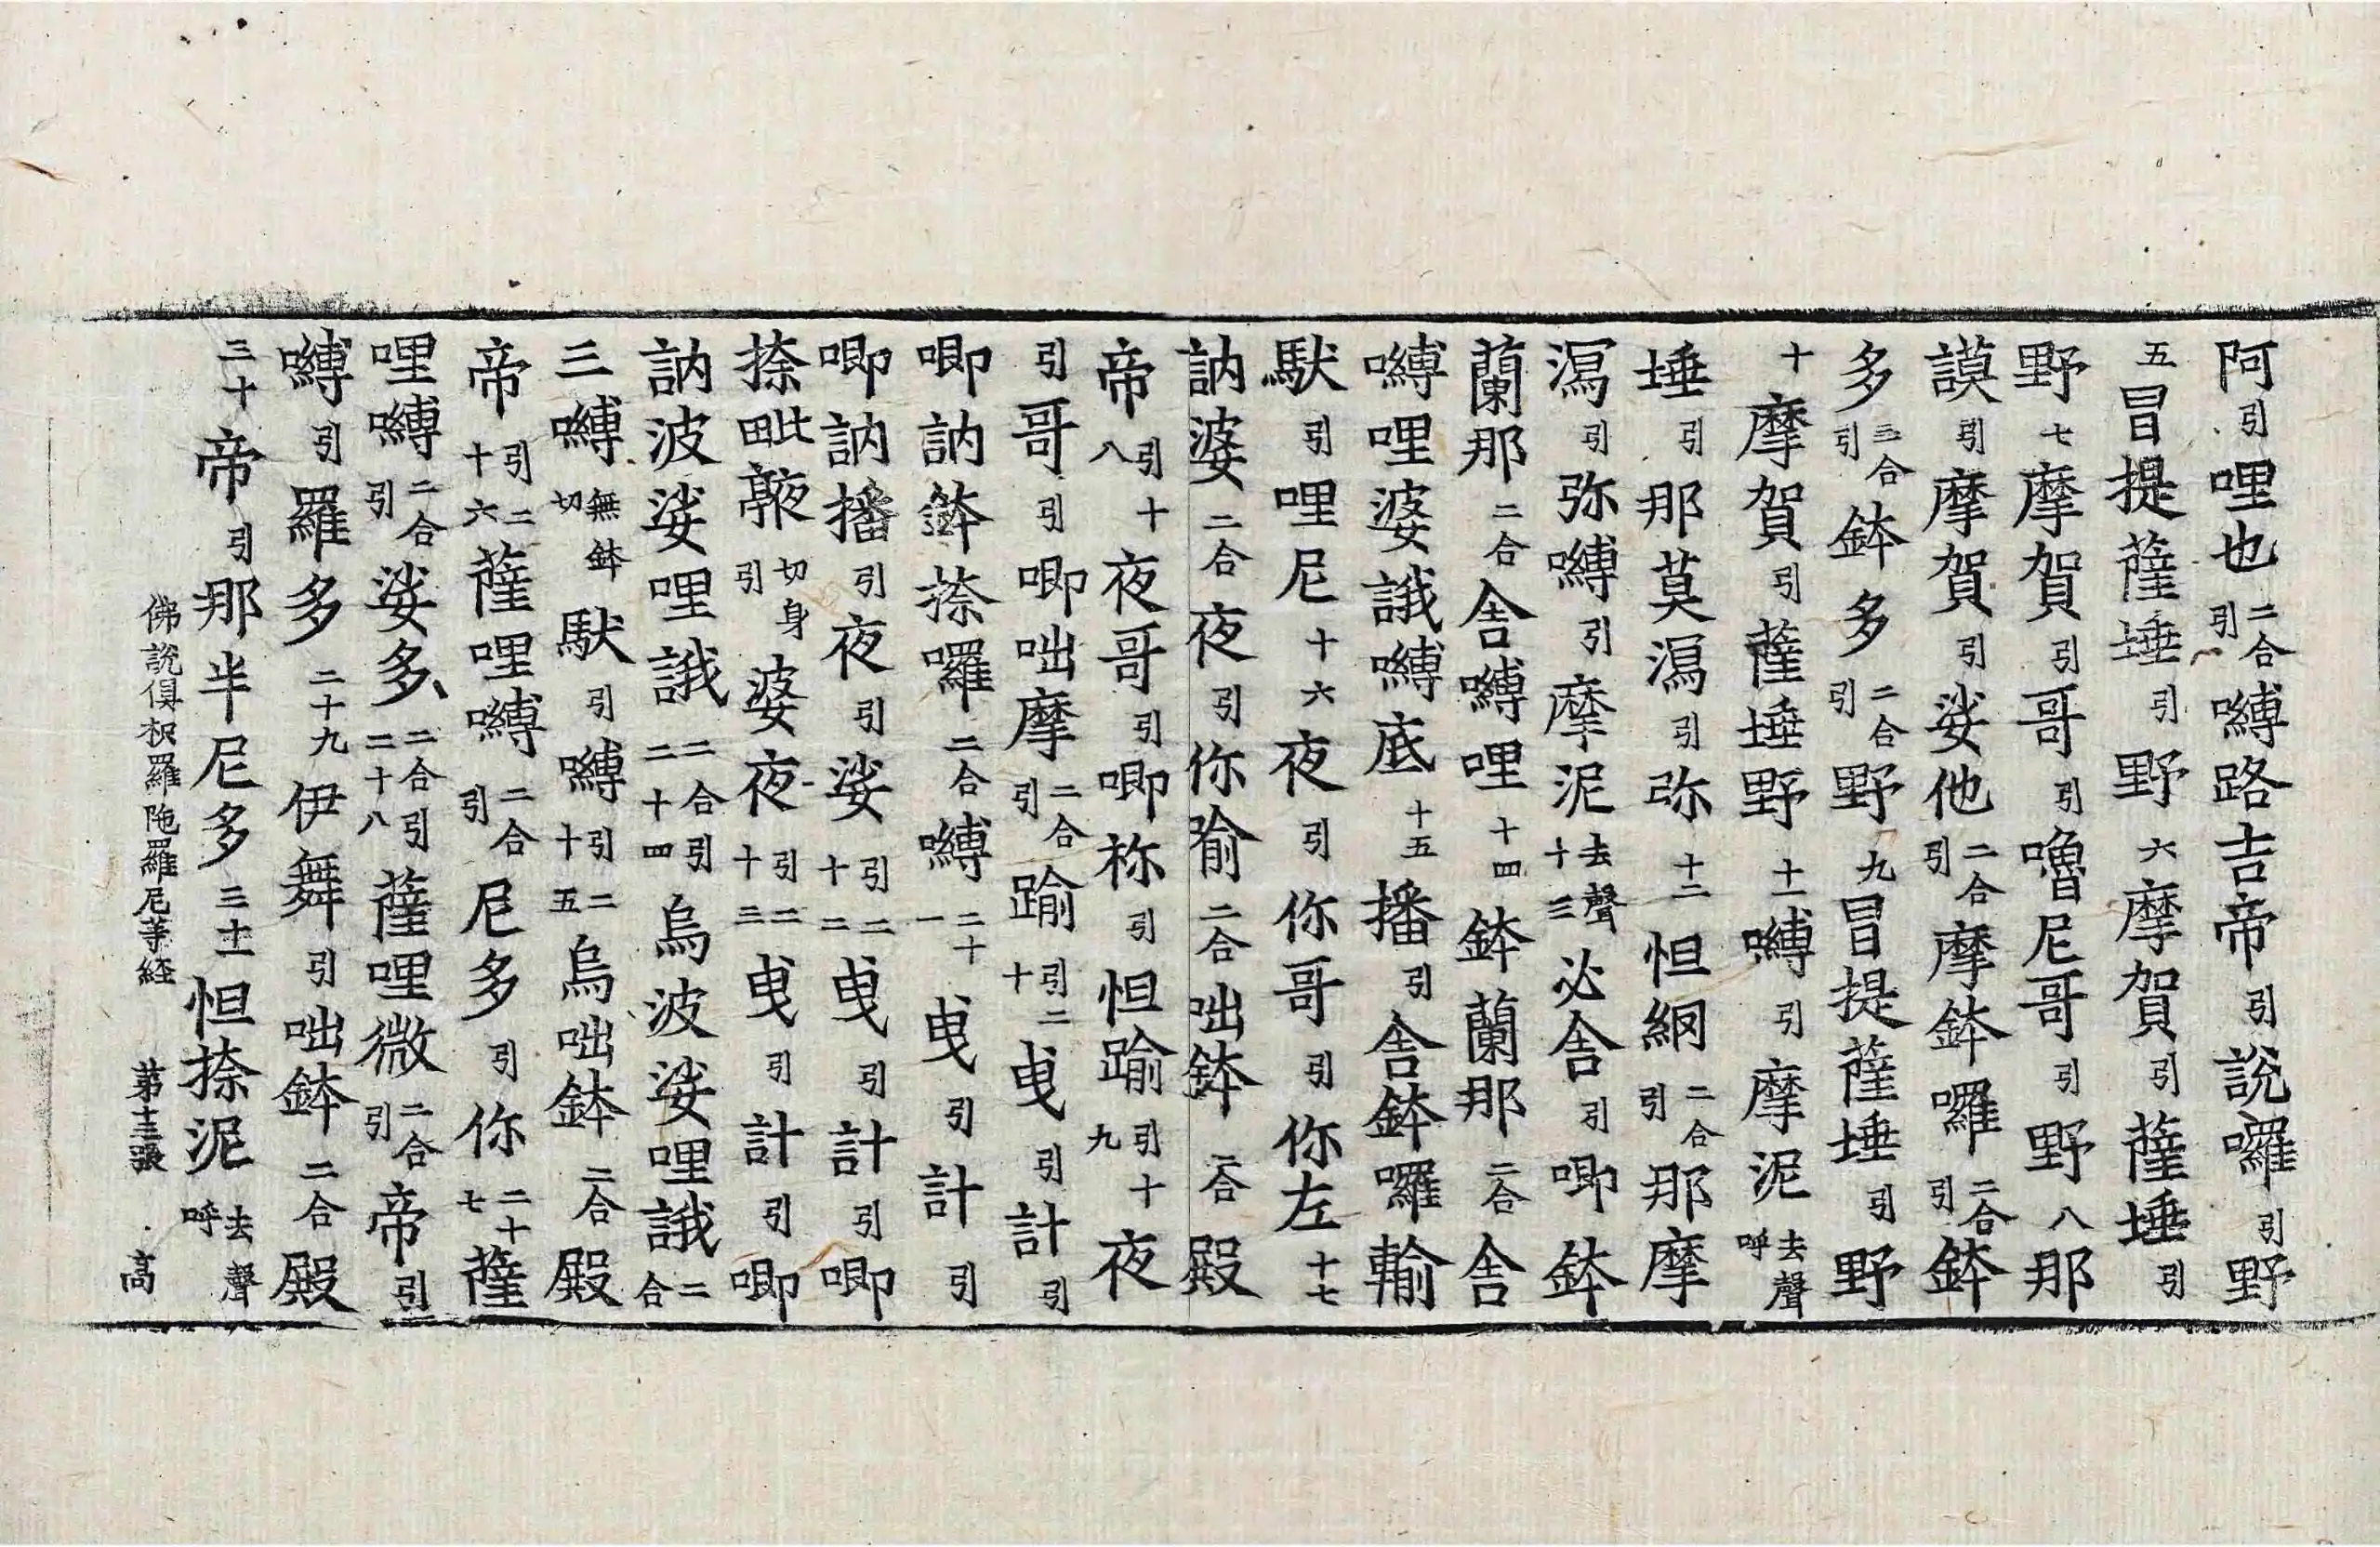 阿引哩也二合引嚩路吉帝引說囉引野
五冒提薩埵引野六摩賀引薩埵引
野七摩賀引哥引嚕尼哥引野八那
謨引摩賀引娑他二合引摩鉢囉二合引鉢
多三合引鉢多二合引野九冒提薩埵引野
十摩賀引薩埵野十一嚩引摩泥去聲呼
埵引那莫㵼引弥十二怛網二合引那摩
㵼引弥嚩引摩泥去聲十三必舍引唧鉢
蘭那二合舍嚩哩十四鉢蘭那二合舍
嚩哩婆誐嚩底十五播引舍鉢囉輸
馱引哩尼十六夜引你哥引你左十七
訥婆二合夜引你喻二合咄鉢二合殿
帝引十八夜哥引唧祢引怛踰引十九夜
引哥引唧咄摩二合引踰引二十曳引計引
唧訥鉢捺囉二合嚩二十一曳引計引
唧訥播引夜引娑引二十二曳引計引唧
捺毗𠆙切身引婆夜引二十三曳引計引唧
訥波娑哩誐二合引二十四烏波娑哩誐二合
三嚩無鉢切馱引嚩引二十五烏咄鉢二合殿
帝引二十六薩哩嚩二合引尼多引你二十七薩
哩嚩二合引娑多二合引二十八薩哩微二合引帝引
嚩引羅多二十九伊舞引咄鉢二合殿
三十帝引那半尼多三十一怛捺泥去聲呼
佛說俱枳羅陁羅尼等經 第十三張 高